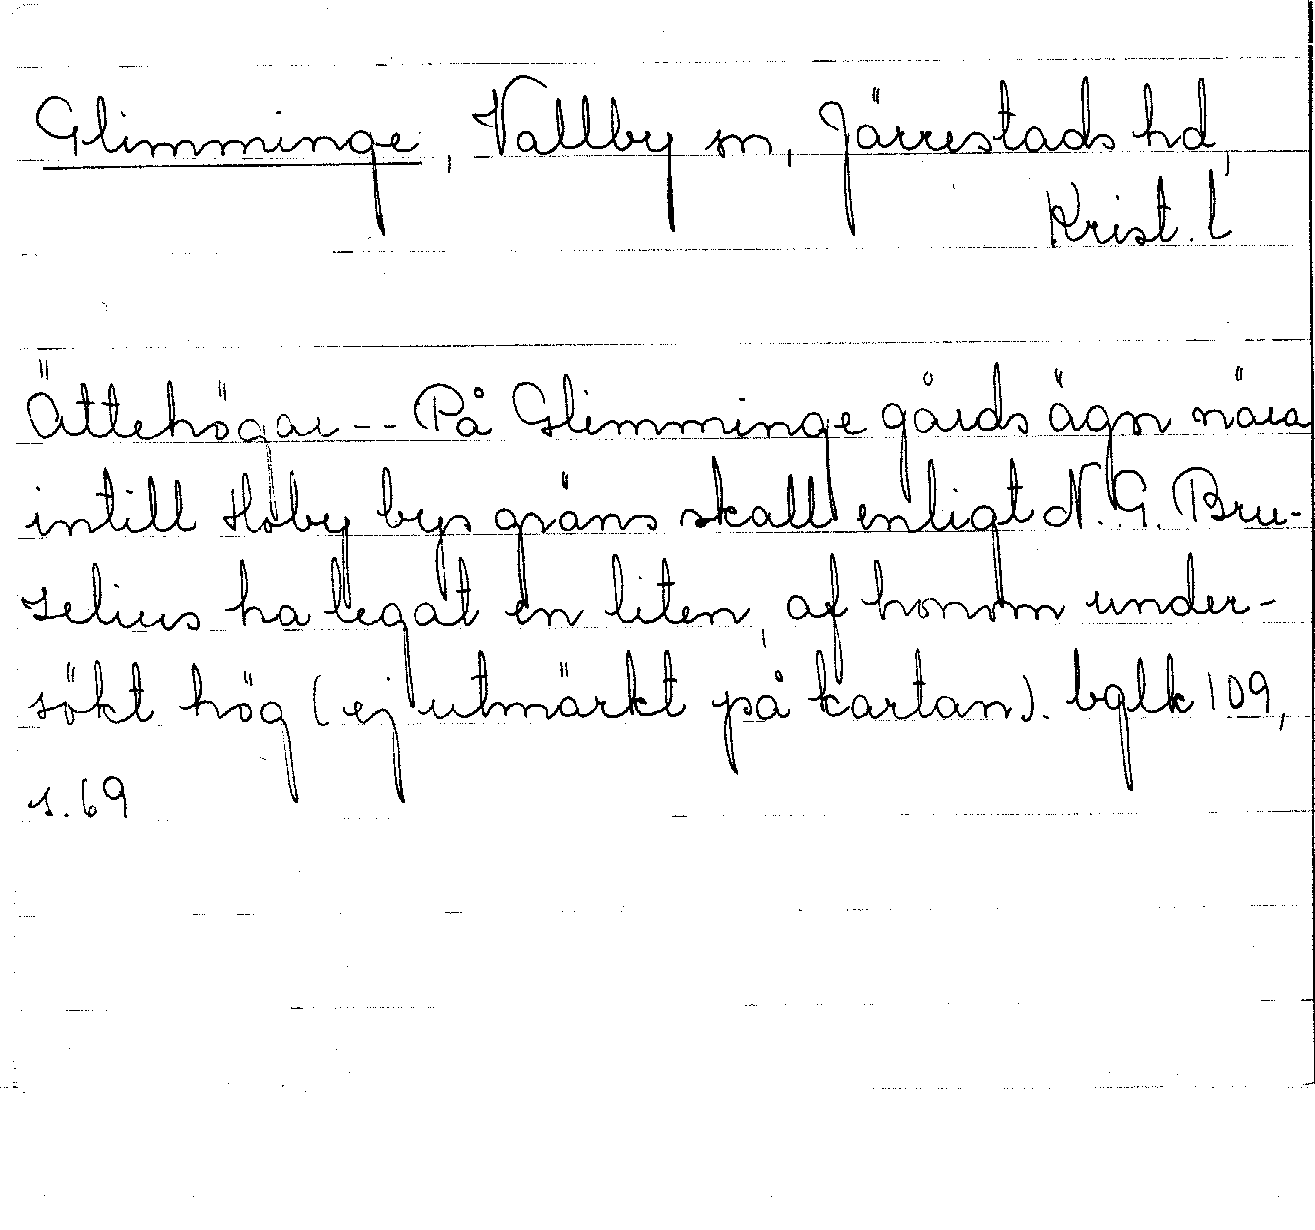 Glimminge, Vallby sn, Järrestads hd,
Krist. l
Ättehögar -- På Glimminge gårds ägor nära
intill Hoby bys gräns skall enligt N. G. Bru-
zelius ha legat en liten, af honom under-
sökt hög (ej utmärkt på kartan). bglk 109,
s. 69